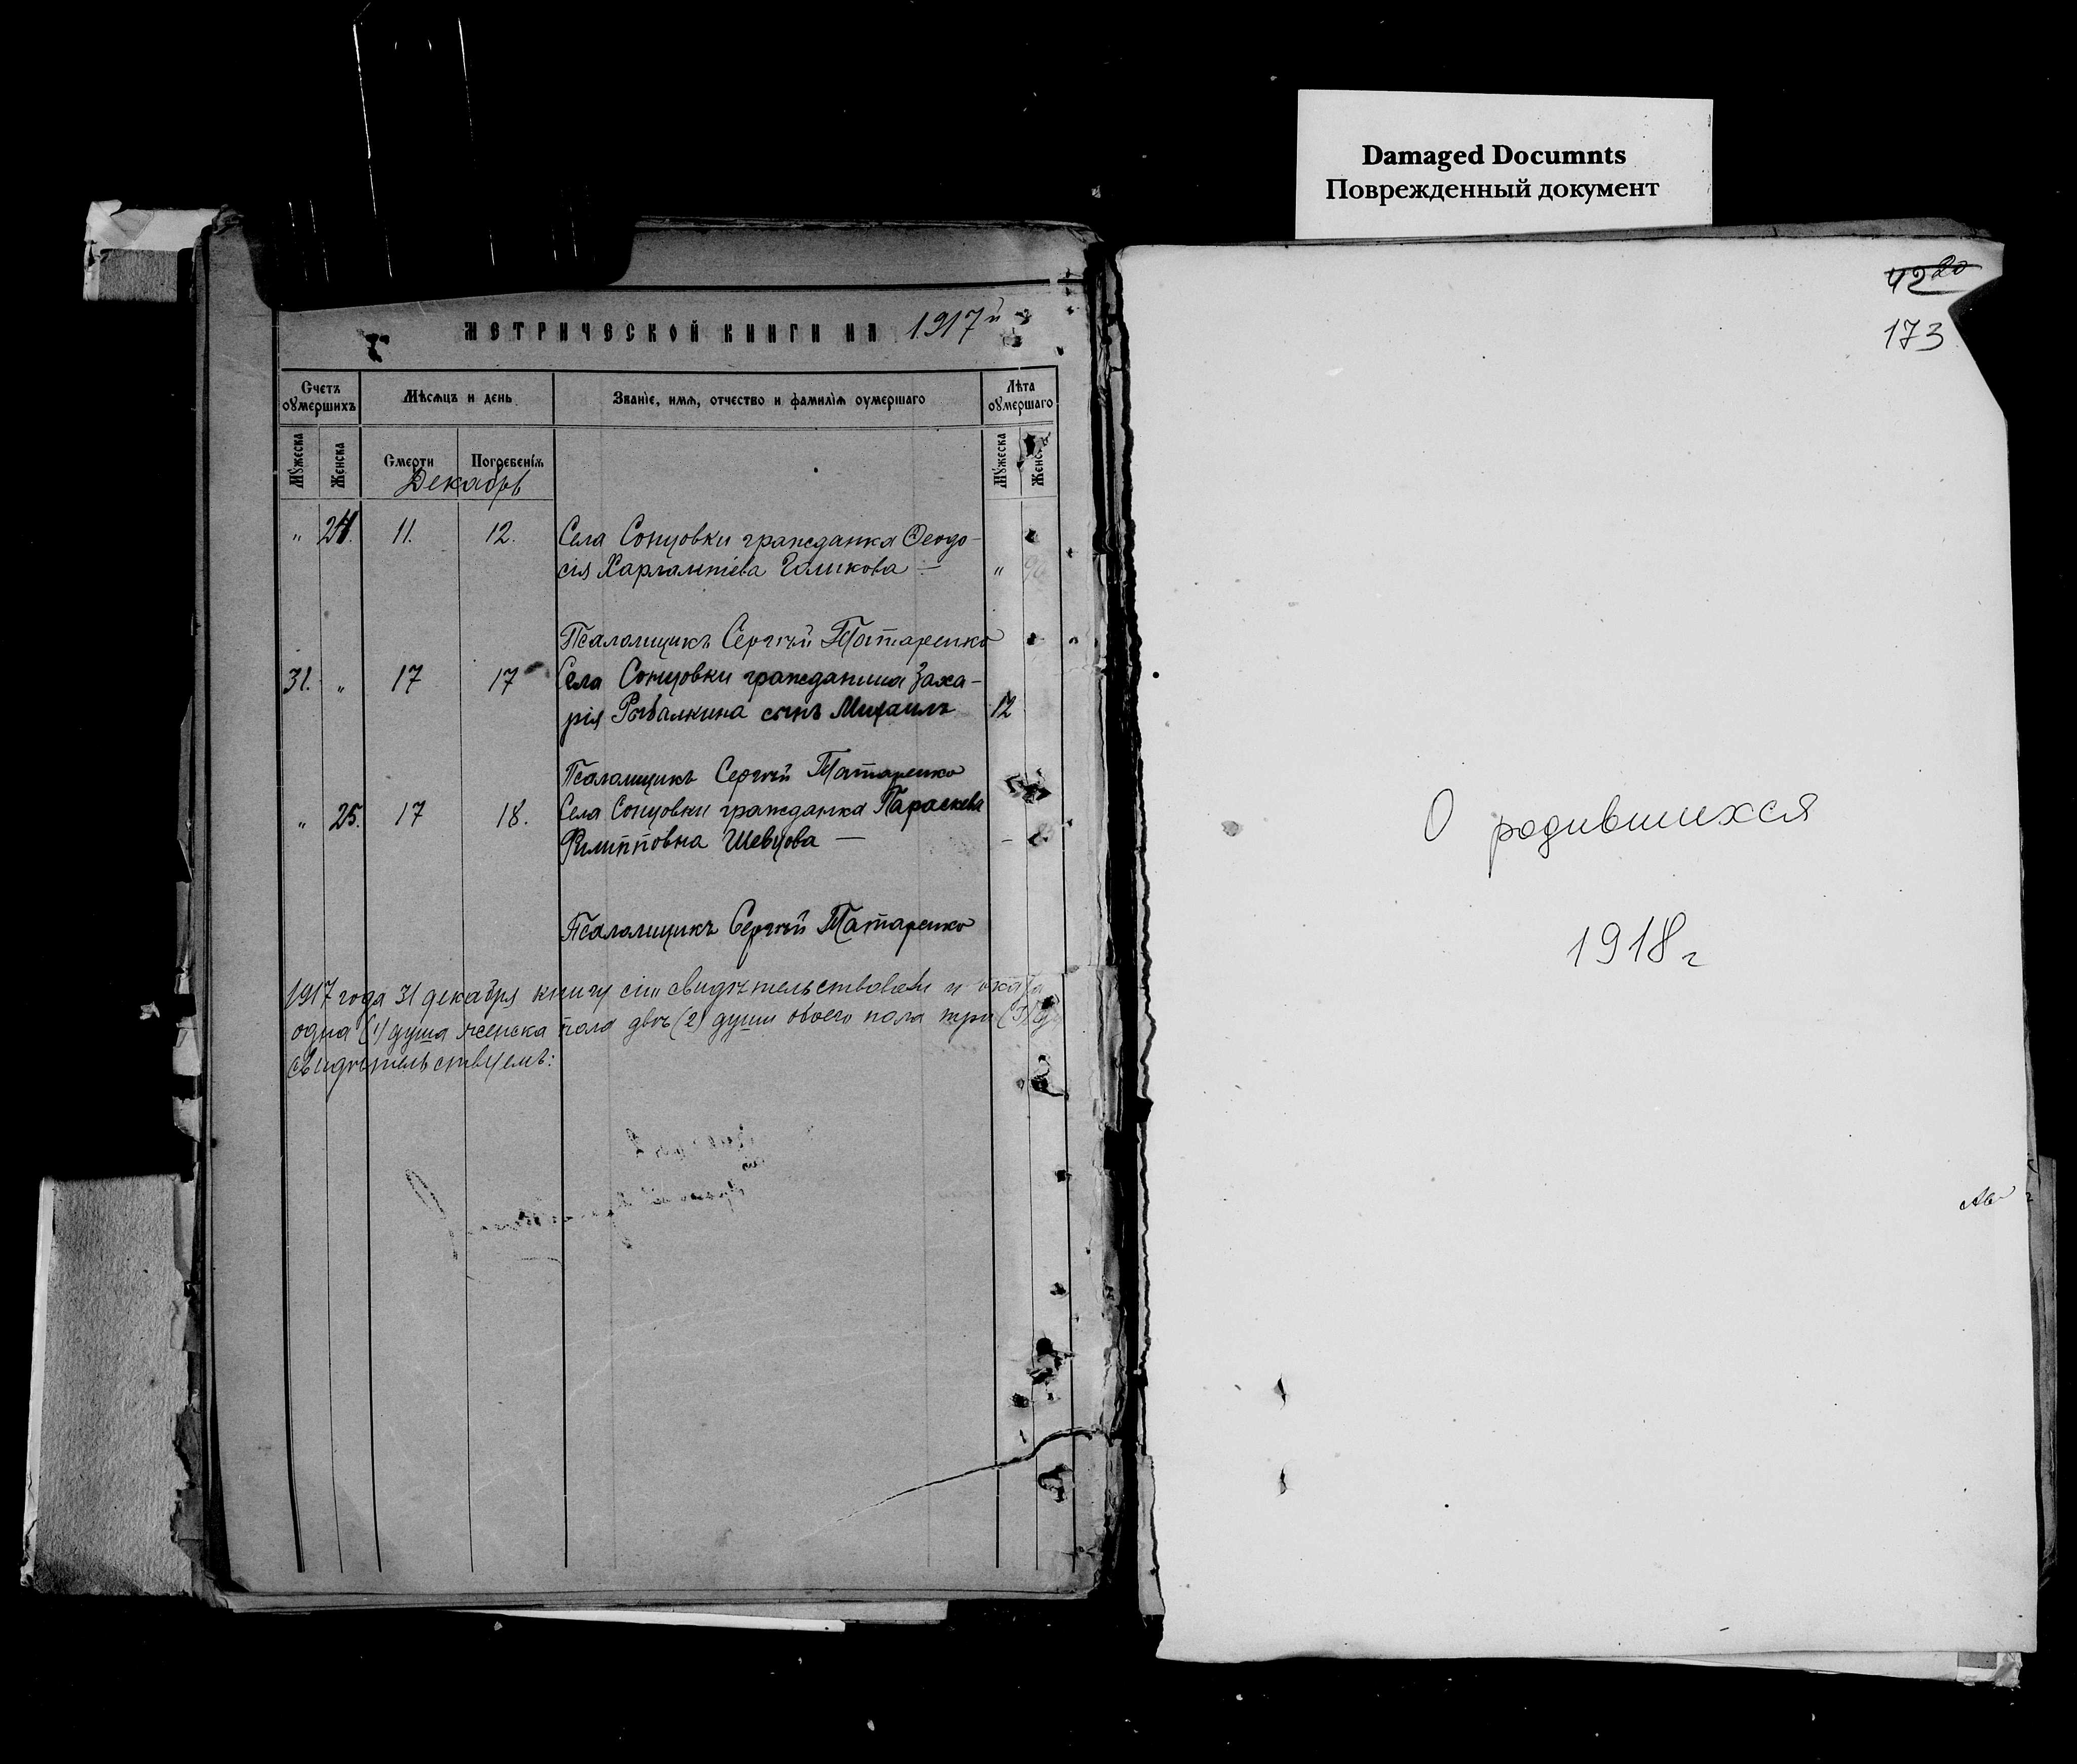 Damaged Documnts
Поврежденный документ
метрической книги на 1917й
Счетъ оумершихъ
Мѣсяцъ и день
Званіе, имя, отчество и фамилія оумершаго
Лѣта оумершаго
Мужеска
Женска
Смерти
Погребенія
Мужеска
Женс
Декабрь
" 24. 11. 12. Села Сонцовки гражданка Ѳеодо-
сія Харлампіева Голикова — "
Псаломщикъ Сергѣй Татаренко
31. " 17 17 Села Сонцовки гражданина Заха-
рія Рыбалкина сынъ Михаилъ 12
Псаломщикъ Сергѣй Татаренко
" 25. 17 18. Села Сонцовки гражданка Параскева
Филипповна Шевцова — -
Псаломщикъ Сергѣй Татаренко
1917 года 31 декабря книгу сію свидѣтельствовали и
одна (1) душа женска пола двѣ (2) души обоего пола три (3)
свидѣтельствуемъ:
42 20
173
О родившихся
1918 г